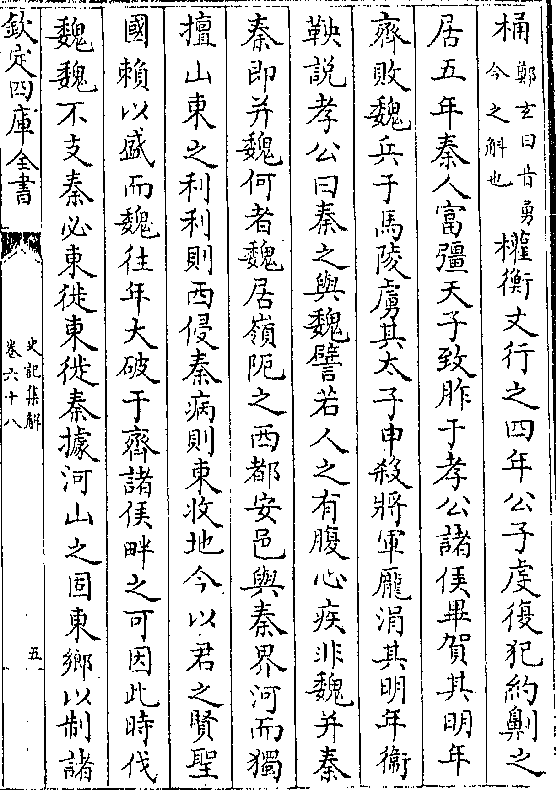 桶鄭玄曰音勇今之斛也權衡丈行之四年公子虔復犯約劓之
居五年秦人富彊天子致胙于孝公諸侯畢賀其明年
齊敗魏兵于馬陵虜其太子申殺將軍龐涓其明年衞
鞅說孝公曰秦之與魏譬若人之有腹心疾非魏并秦
秦即并魏何者魏居嶺阨之西都安邑與秦界河而獨
擅山東之利利則西侵秦病則東收地今以君之賢聖
國賴以盛而魏往年大破于齊諸侯畔之可因此時伐
魏魏不支秦必東徙東徙秦據河山之固東鄉以制諸
欽定四庫全書
史記集解
卷六十八
五